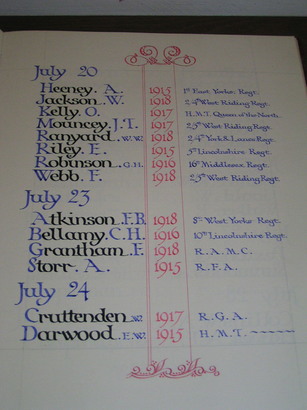 July 20
Heeney. A. 1915 1st East Yorks. Regt.
Jackson. W. 1918 2/4th West Riding Regt.
Kelly. O. 1917 H.M.T. Queen of the North.
Mouncey. J.T. 1917 2/5th West Riding Regt.
Ranyard. W.W. 1918 2/4th York & Lancs Regt.
Riley. E. 1915 5th Lincolnshire Regt.
Robinson. G.H. 1916 16th Middlesex Regt.
Webb. F. 1918 2/5th West Riding Regt.
July 23
Atkinson. F.B. 1918 8th West Yorks Regt.
Bellamy. C.H. 1916 10th Lincolnshire Regt.
Grantham. F. 1918 R.A.M.C.
Storr. A. 1915 R.F.A.
July 24
Cruttenden. W. 1917 R.G.A.
Darwood. E.W. 1915 H.M.T.